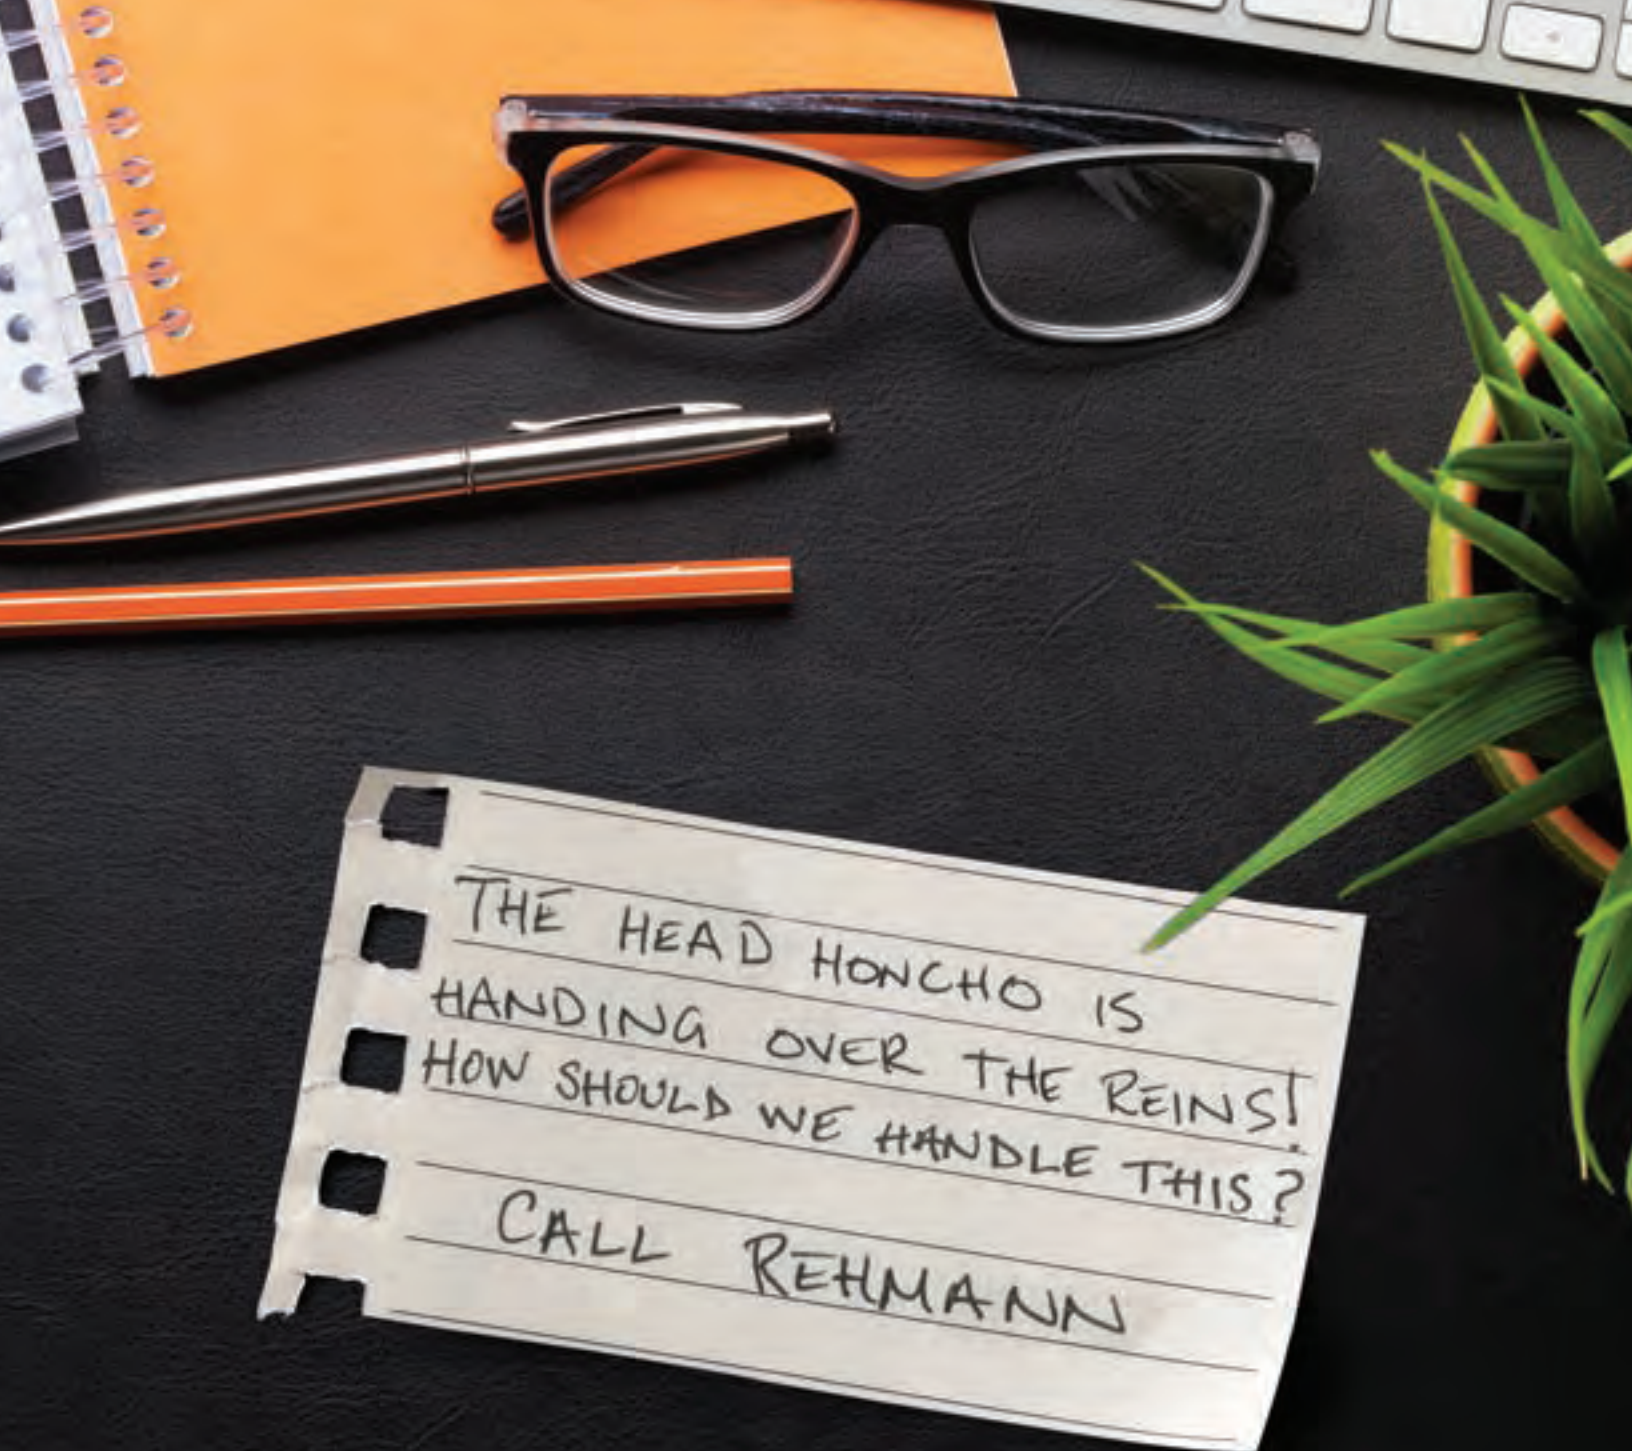 THE HEAD HONCHO IS
HANDING OVER THE REINS!
HOW SHOULD WE HANDLE THIS?
CALL REHMANN